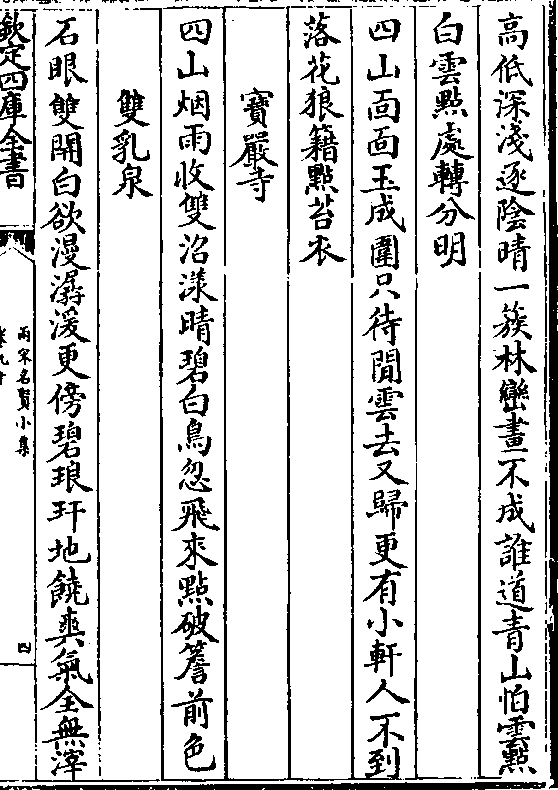 高低深淺逐陰晴一簇林巒畫不成誰道青山怕雲㸃
白雲㸃處轉分明
四山面面玉成圍只待閒雲去又歸更有小軒人不到
落花狼籍㸃苔衣
寳嚴寺
四山烟雨收雙沼漾晴碧白鳥忽飛來㸃破簷前色
雙乳泉
石眼雙開白欲漫潺湲更傍碧琅玕地饒爽氣全無滓
欽定四庫全書
兩宋名賢小集
卷九十
四